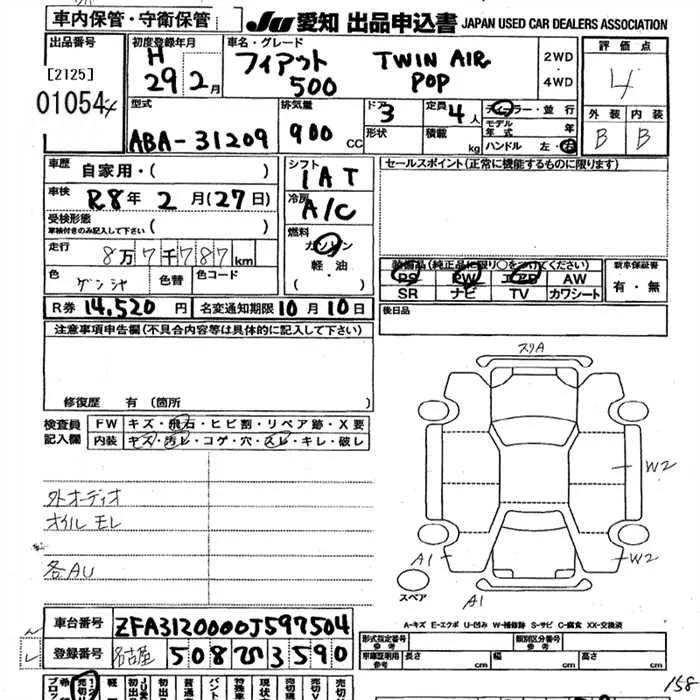 車内保管・守衛保管
JU 愛知 出品申込書 JAPAN USED CAR DEALERS ASSOCIATION
出品番号
[2125]
01054
初度登録年月
H
29 2月
車名・グレード
フィアット
500
TWIN AIR
POP
2WD
・
4WD
評価点
4
外装 内装
B B
型式
ABA-31209
排気量
900 cc
ドア
3
形状
定員
4人
積載
kg
ディーラー・並行
モデル年式 年
ハンドル 左・右
車歴
自家用・( )
車検
R8年 2月(27日)
受検形態
車検付きのみ記入して下さい ( )
走行
8万7千787km
色
ゲンシャ
色替
色コード
シフト
IAT
冷房
A/C
燃料
ガソリン
軽・油
( )
セールスポイント(正常に機能するものに限ります)
装備品(純正品に限り〇をつけてください)
PS PW エアB AW
SR ナビ TV カワシート
新車保証書
有・無
後日品
R券 14,520円
名変通知期限 10月10日
注意事項申告欄(不具合内容等は具体的に記入して下さい)
修復歴 有 (箇所 )
検査員
記入欄
FW キズ・飛石・ヒビ割・リペア跡・X要
内装 キズ・汚レ・コゲ・穴・スレ・キレ・破レ
外オーディオ
オイル モレ
各AU
スリA
W2
W2
A1
A1
スペア
A-キズ E-エクボ U-凹み W-補修跡 S-サビ C-腐食 XX-交換済
車台番号
ZFA3120000J597504
登録番号
名古屋 508 ひ 3590
形式指定番号
参考
類別区分番号
参考
車庫証明用
参考
長さ cm
幅 cm
高さ cm
158